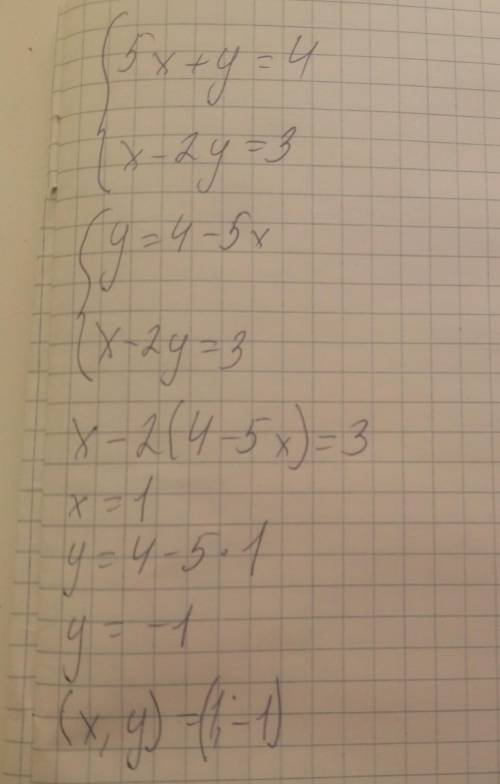 5x+y=4
x-2y=3
y=4-5x
x-2y=3
x-2(4-5x)=3
x=1
y=4-5·1
y=-1
(x,y)=(1;-1)